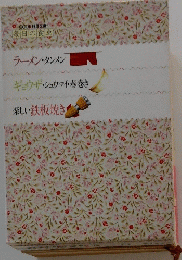 ラーメン・タンメン
ギョウザ・シュウマイ・春巻き
楽しい鉄板焼き